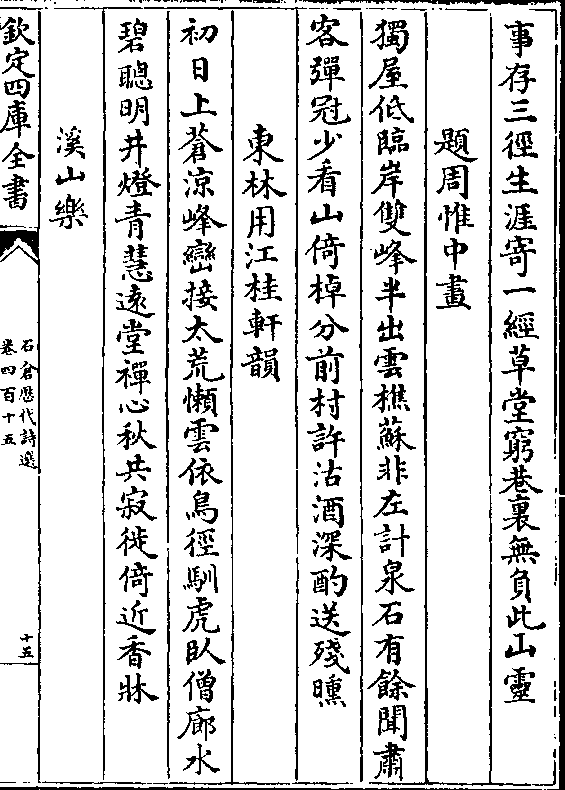 事存三徑生涯寄一經草堂窮巷裏無負此山靈
題周惟中畫
獨屋低臨岸雙峰半出雲樵蘇非左計泉石有餘聞肅
客彈冠少看山倚棹分前村許沽酒深酌送殘曛
東林用江桂軒韻
初日上蒼涼峰巒接太荒懶雲依鳥徑馴虎臥僧廊水
碧聰明井燈青慧遠堂禪心秋共寂徙倚近香牀
溪山樂
欽定四庫全書
石倉歴代詩選
卷四百十五
十五